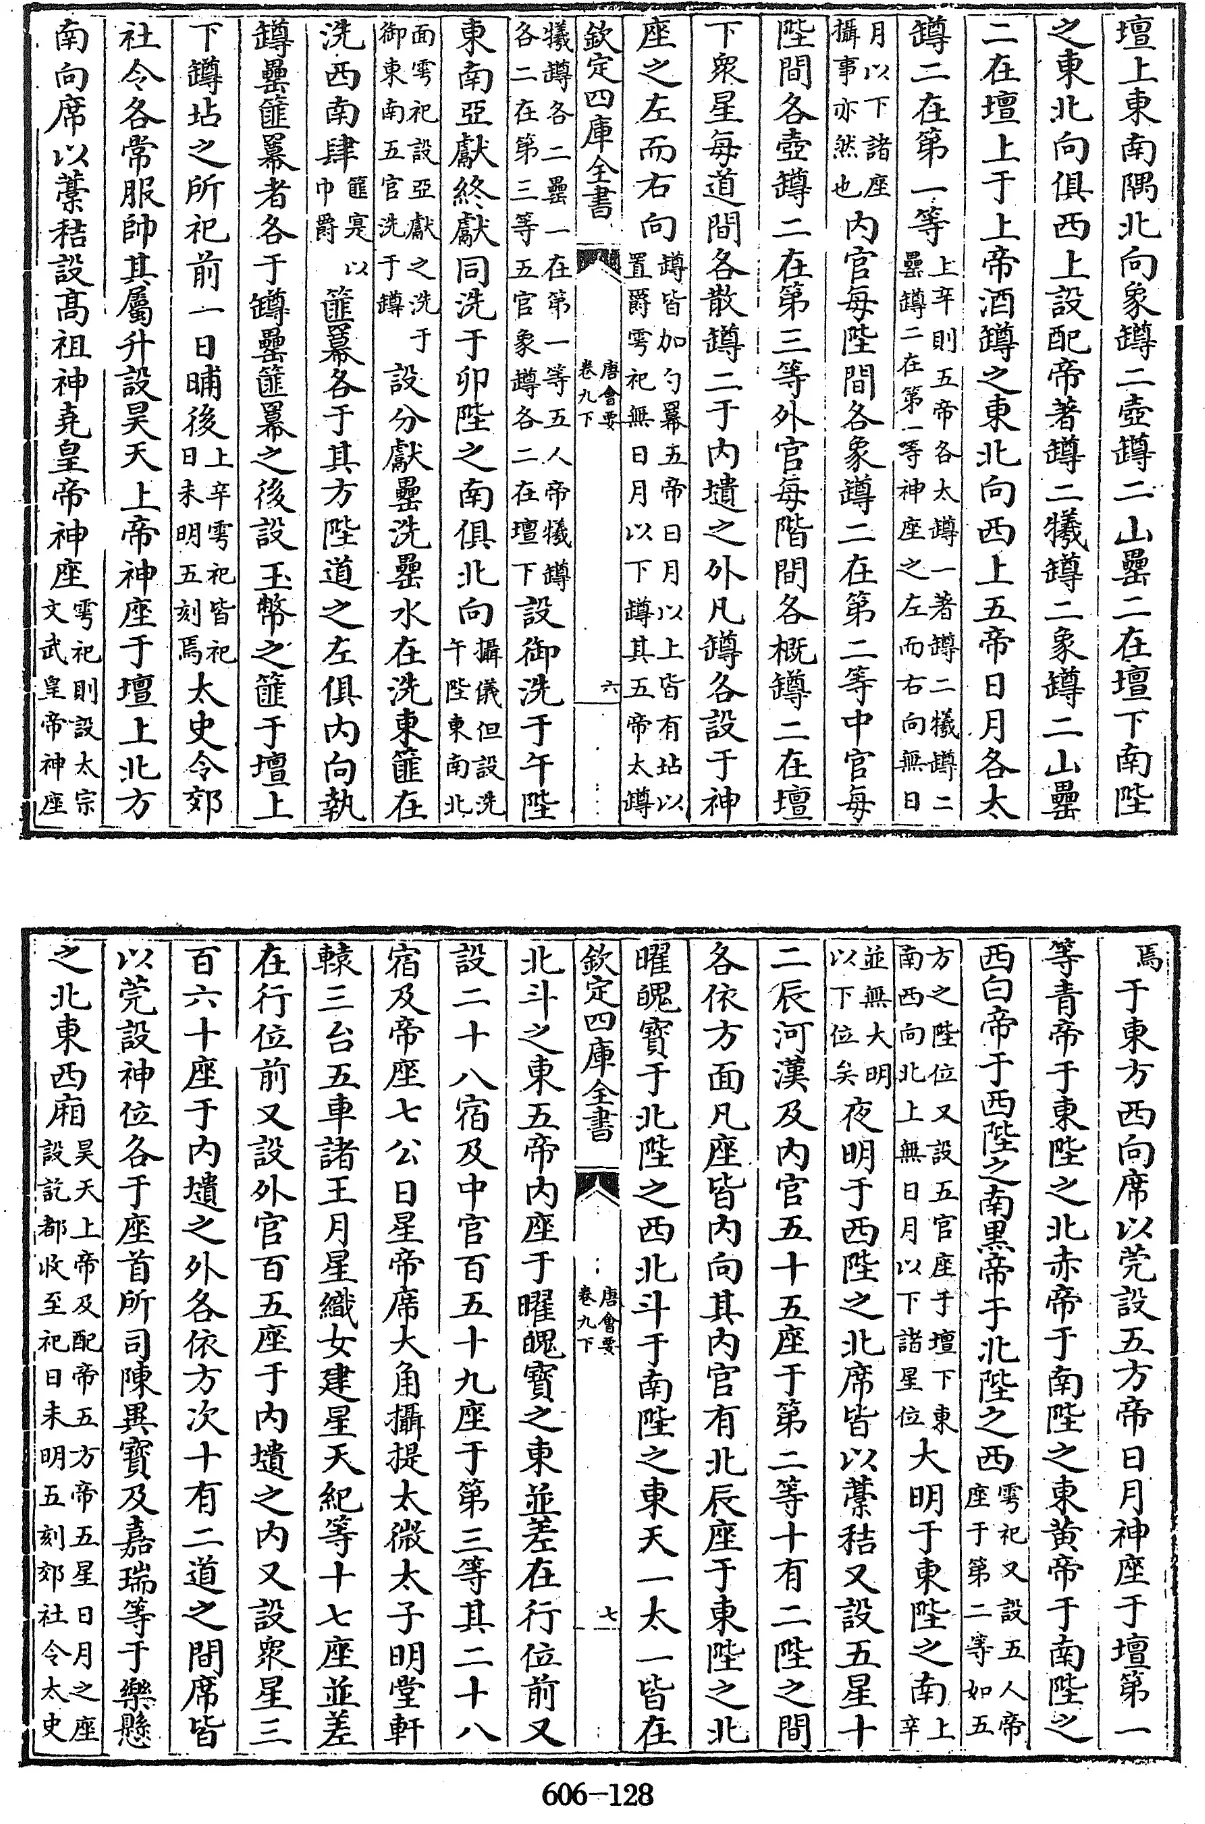 壇上東南隅北向象罇二壺罇二山罍二在壇下南陛
之東北向俱西上設配帝著罇二犧罇二象罇二山罍
二在壇上于上帝酒罇之東北向西上五帝日月各太
罇二在第一等上辛則五帝各太罇一著罇二犧罇二罍罇二在第一等神座之左而右向無日
月以下諸座攝事亦然也內官每陛間各象罇二在第二等中官每
陛間各壺罇二在第三等外官每階間各概罇二在壇
下衆星每道間各散罇二于內壝之外凡罇各設于神
座之左而右向罇皆加勺冪五帝日月以上皆有坫以置爵雩祀無日月以下罇其五帝太罇
欽定四庫全書 唐會要 卷九下 六
犧罇各二罍一在第一等五人帝犧罇各二在第三等五官象罇各二在壇下設御洗于午陛
東南亞獻終獻同洗于卯陛之南俱北向攝儀但設洗午陛東南北
面雩祀設亞獻之洗于御東南五官洗于罇設分獻罍洗罍水在洗東篚在
洗西南肆篚寔以巾爵篚冪各于其方陛道之左俱內向執
罇罍篚冪者各于罇罍篚冪之後設玉幣之篚于壇上
下罇坫之所祀前一日晡後上辛雩祀皆祀日未明五刻焉太史令郊
社令各常服帥其屬升設昊天上帝神座于壇上北方
南向席以藁秸設高祖神堯皇帝神座雩祀則設太宗文武皇帝神座
焉于東方西向席以莞設五方帝日月神座于壇第一
等青帝于東陛之北赤帝于南陛之東黃帝于南陛之
西白帝于西陛之南黑帝于北陛之西雩祀又設五人帝座于第二等如五
方之陛位又設五官座于壇下東南西向北上無日月以下諸星位大明于東陛之南上辛
並無大明以下位矣夜明于西陛之北席皆以藁秸又設五星十
二辰河漢及內官五十五座于第二等十有二陛之間
各依方面凡座皆內向其內官有北辰座于東陛之北
曜魄寶于北陛之西北斗于南陛之東天一太一皆在
欽定四庫全書 唐會要 卷九下 七
北斗之東五帝內座于曜魄寶之東並差在行位前又
設二十八宿及中官百五十九座于第三等其二十八
宿及帝座七公日星帝席大角攝提太微太子明堂軒
轅三台五車諸王月星織女建星天紀等十七座並差
在行位前又設外官百五座于內壝之內又設衆星三
百六十座于內壝之外各依方次十有二道之間席皆
以莞設神位各于座首所司陳異寶及嘉瑞等于樂懸
之北東西廂昊天上帝及配帝五方帝五星日月之座設訖都收至祀日未明五刻郊社令太史
606-128